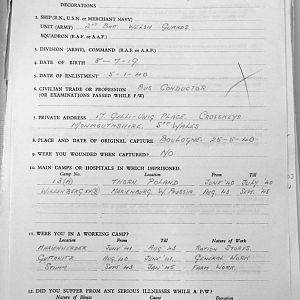 DECORATIONS
2. SHIP (R.N., U.S.N. or MERCHANT NAVY)
UNIT (ARMY) 2nd Bat. WELSH GUARDS
SQUADRON (R.A.F. or A.A.F.)
3. DIVISION (ARMY), COMMAND (R.A.F. or A.A.F.)
4. DATE OF BIRTH 8-7-19
5. DATE OF ENLISTMENT 5-1-40
6. CIVILIAN TRADE OR PROFESSION BUS CONDUCTOR
(OR EXAMINATIONS PASSED WHILE P/W)
7. PRIVATE ADDRESS 17. GELLI-UNIG PLACE. CROSSKEYS
MONMOUTHSHIRE, Sth WALES
8. PLACE AND DATE OF ORIGINAL CAPTURE BOULOGNE. 25-5-40
9. WERE YOU WOUNDED WHEN CAPTURED? NO
10. MAIN CAMPS OR HOSPITALS IN WHICH IMPRISONED.
Camp No. Location From Till
13(A) THORN POLAND JUNE 40 JULY 40
WILLENBERG XXB MARIENBURG W PRUSSIA AUG 40 SEPT 43
11. WERE YOU IN A WORKING CAMP?
Location From Till Nature of Work
MARIENWERDER JUNE 41 AUG 43 RATION STORES.
AUG 40 JUNE 41 GENERAL WORK
STUMM SEPT 43 JAN 45 FARM WORK
12. DID YOU SUFFER FROM ANY SERIOUS ILLNESSES WHILE A P/W?
Nature of Illness Cause Duration